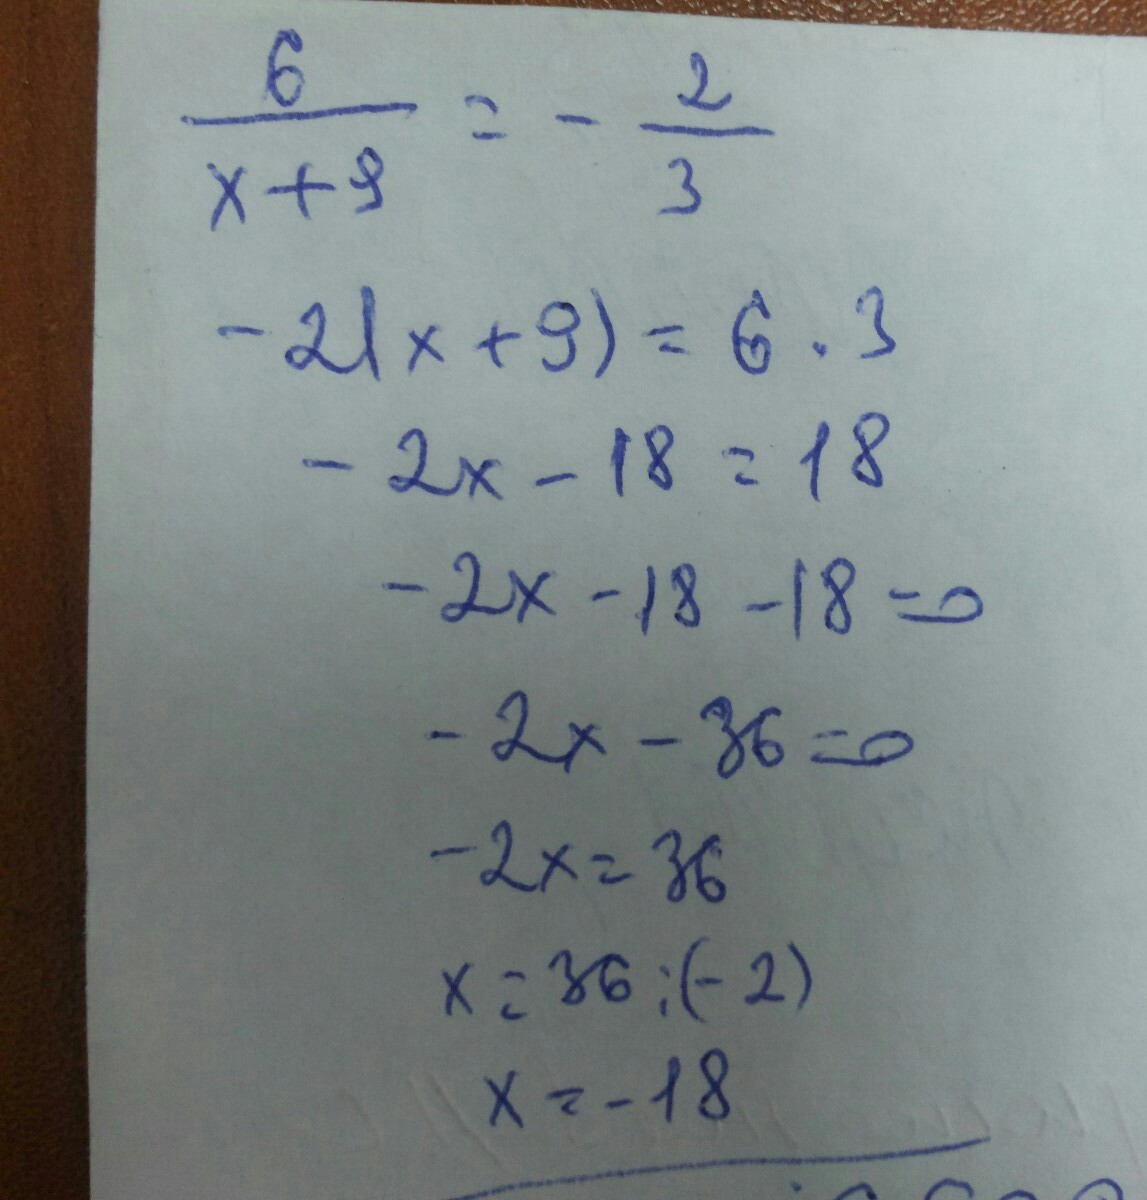 6/(x+9) = - 2/3
-2(x+9) = 6 · 3
-2x - 18 = 18
-2x - 18 - 18 = 0
-2x - 36 = 0
-2x = 36
x = 36 : (-2)
x = -18